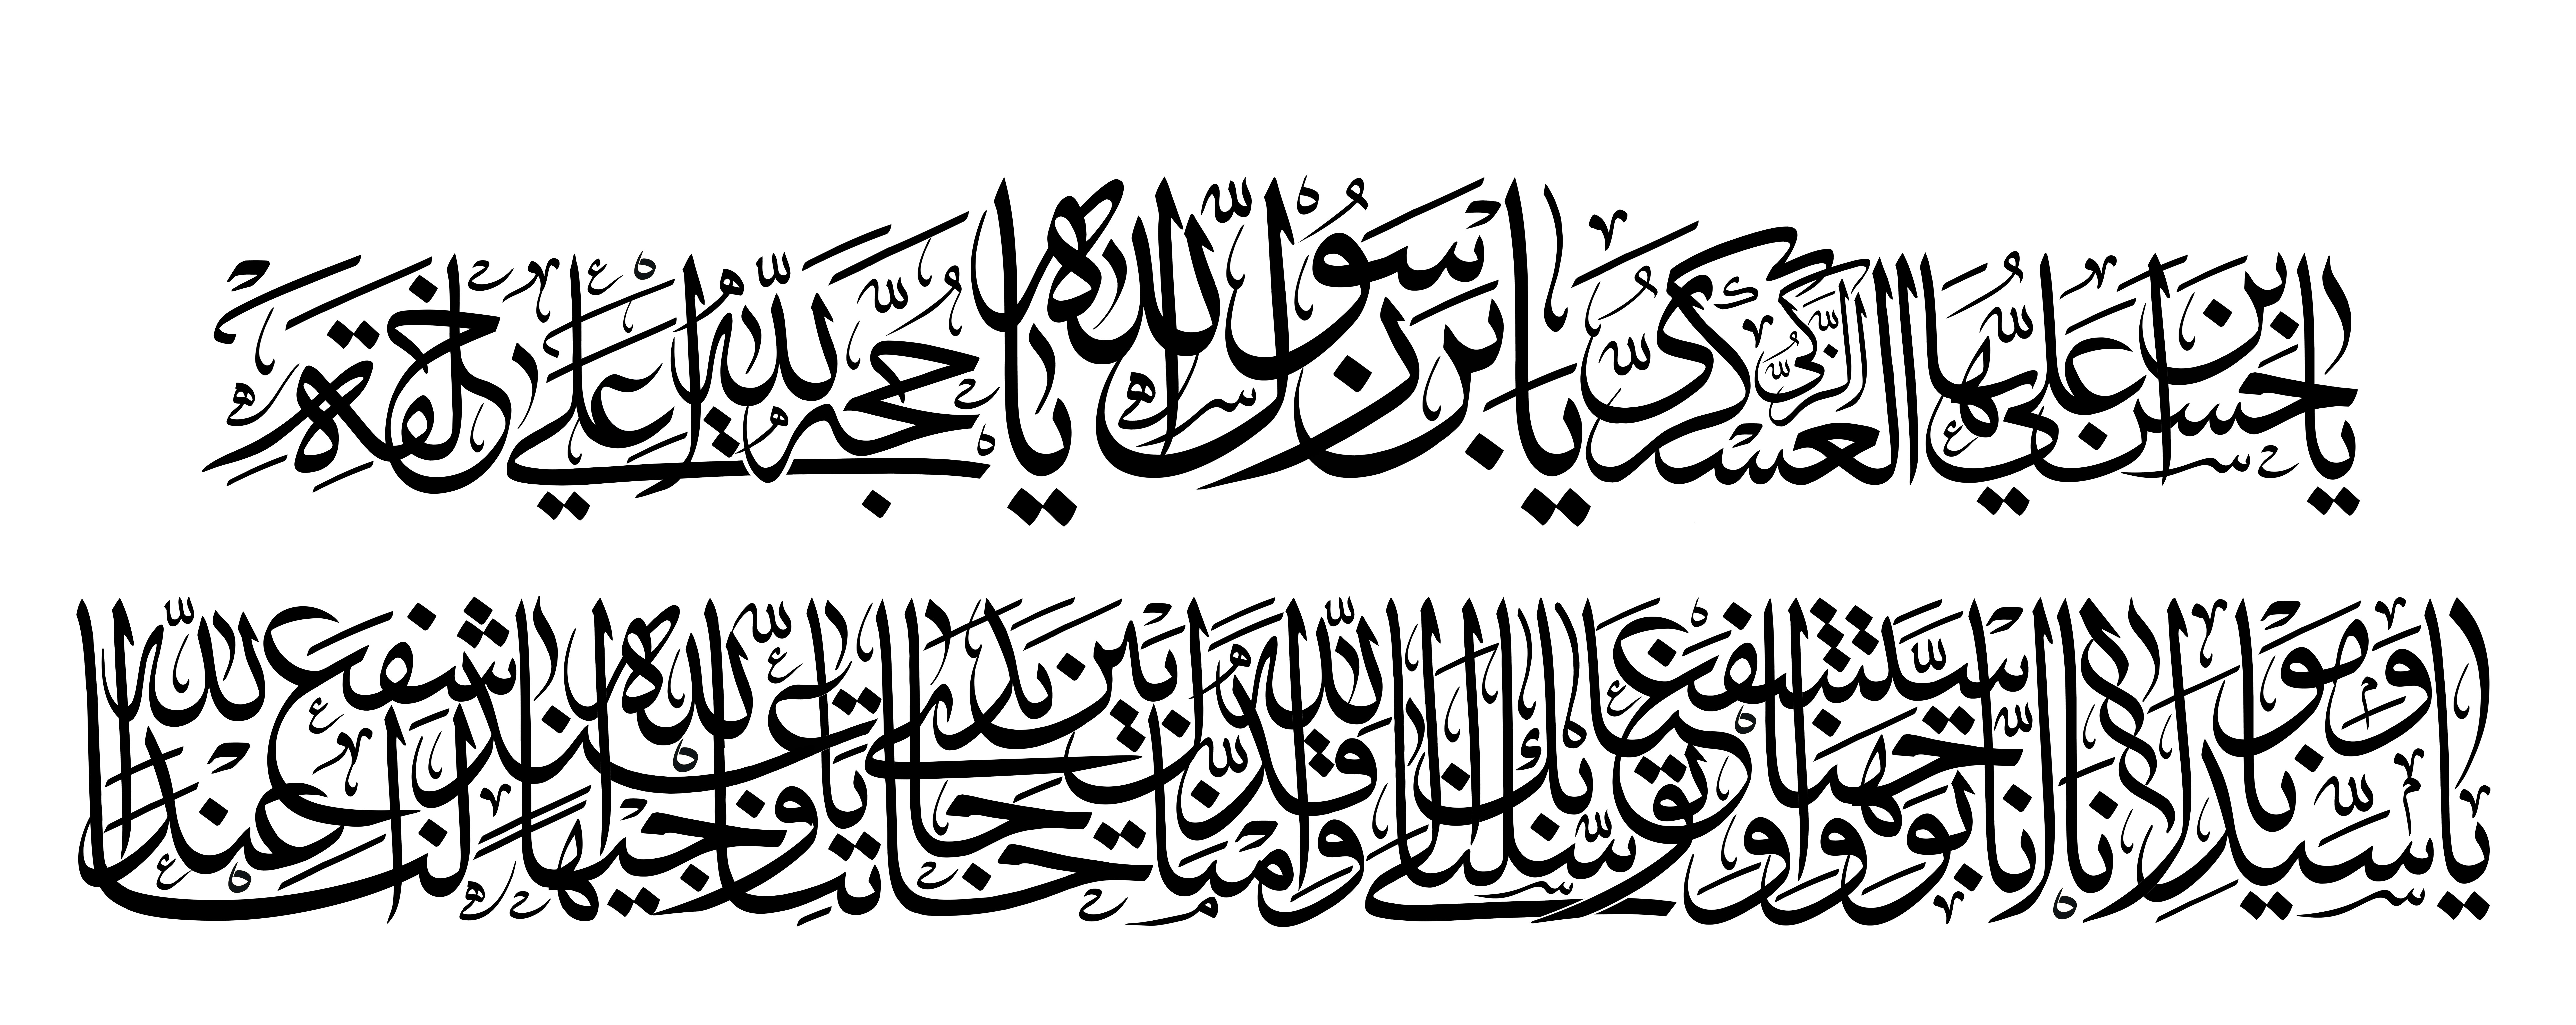 يا حسن بن علي ايها الزكي العسكري يا بن رسول الله يا حجة الله على خلقه
يا سيدنا و مولانا انا توجهنا و استشفعنا و توسلنا بك الى الله و قدمناك بين يدى حاجاتنا يا وجيها عند الله اشفع لنا عند الله